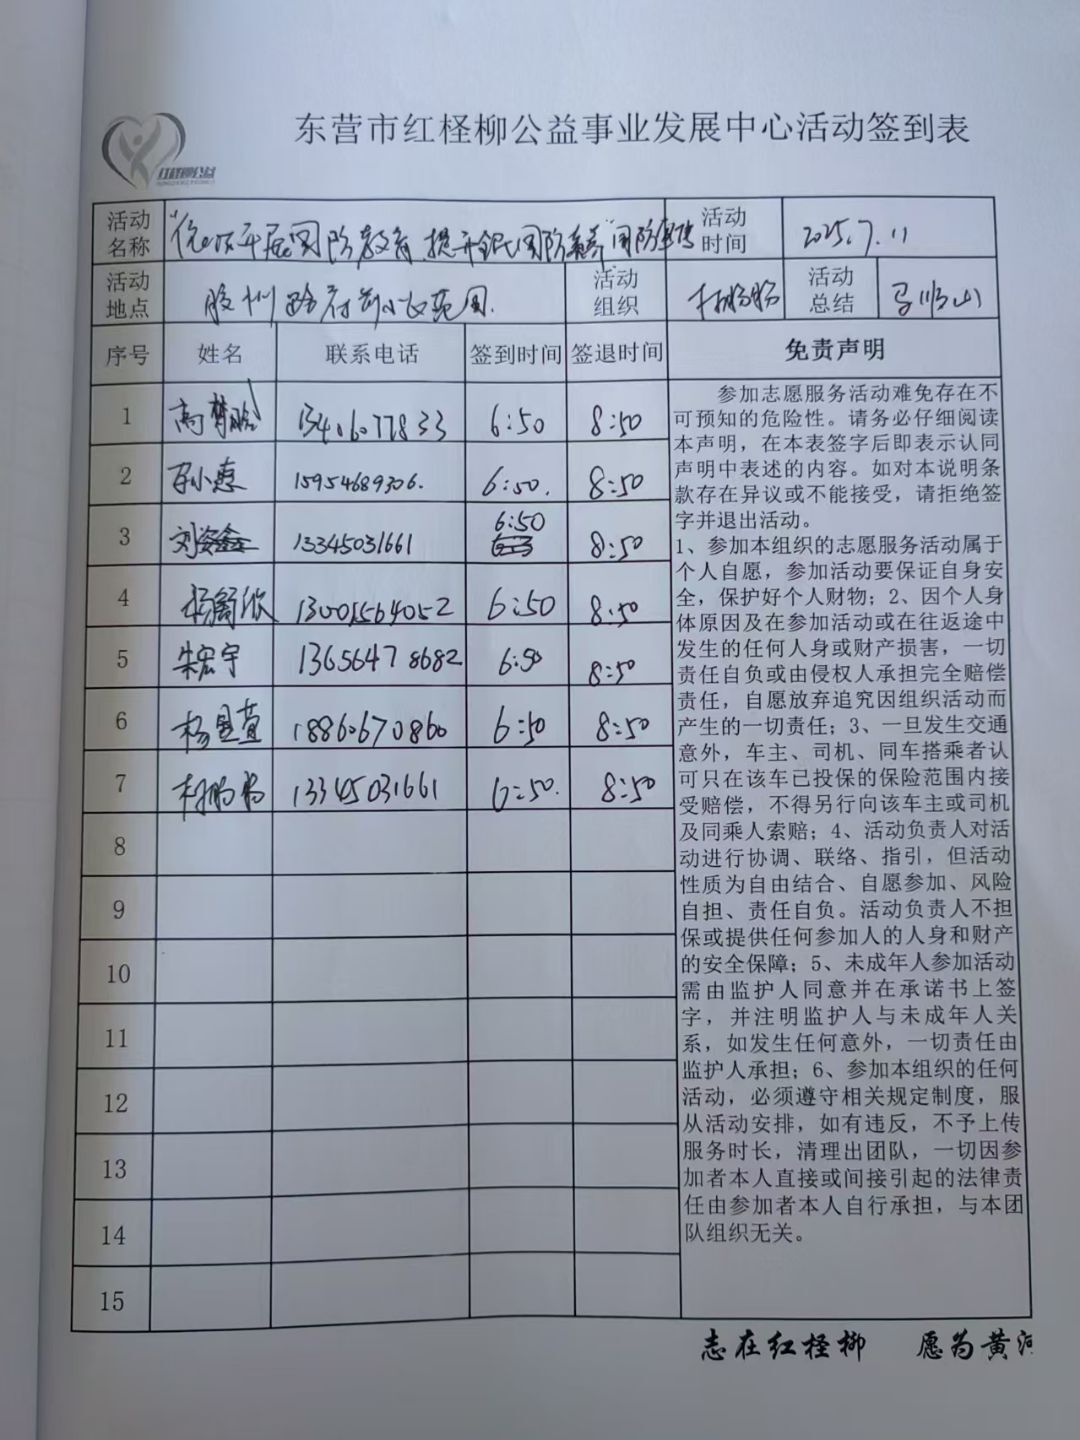 红柽柳公益
东营市红柽柳公益事业发展中心活动签到表
活动名称 国防教育 提升 国防素养 国防 活动时间 2025.7.11
活动地点 胶州路 活动组织 活动总结 马顺山
序号 姓名 联系电话 签到时间 签退时间 免责声明
1 高梦 13406077833 6:50 8:50
2 小惠 15954689306. 6:50. 8:50
3 刘姿鑫 13345031661 6:50 8:50
4 杨舒欣 13001564052 6:50 8:50
5 朱宏宇 13656478682 6:50 8:50
6 杨昱萱 18860670860 6:50 8:50
7 13345031661 6:50. 8:50
8
9
10
11
12
13
14
15
参加志愿服务活动难免存在不
可预知的危险性。请务必仔细阅读
本声明，在本表签字后即表示认同
声明中表述的内容。如对本说明条
款存在异议或不能接受，请拒绝签
字并退出活动。
1、参加本组织的志愿服务活动属于
个人自愿，参加活动要保证自身安
全，保护好个人财物；2、因个人身
体原因及在参加活动或在往返途中
发生的任何人身或财产损害，一切
责任自负或由侵权人承担完全赔偿
责任，自愿放弃追究因组织活动而
产生的一切责任；3、一旦发生交通
意外，车主、司机、同车搭乘者认
可只在该车已投保的保险范围内接
受赔偿，不得另行向该车主或司机
及同乘人索赔；4、活动负责人对活
动进行协调、联络、指引，但活动
性质为自由结合、自愿参加、风险
自担、责任自负。活动负责人不担
保或提供任何参加人的人身和财产
的安全保障；5、未成年人参加活动
需由监护人同意并在承诺书上签
字，并注明监护人与未成年人关
系，如发生任何意外，一切责任由
监护人承担；6、参加本组织的任何
活动，必须遵守相关规定制度，服
从活动安排，如有违反，不予上传
服务时长，清理出团队，一切因参
加者本人直接或间接引起的法律责
任由参加者本人自行承担，与本团
队组织无关。
志在红柽柳 愿为黄河